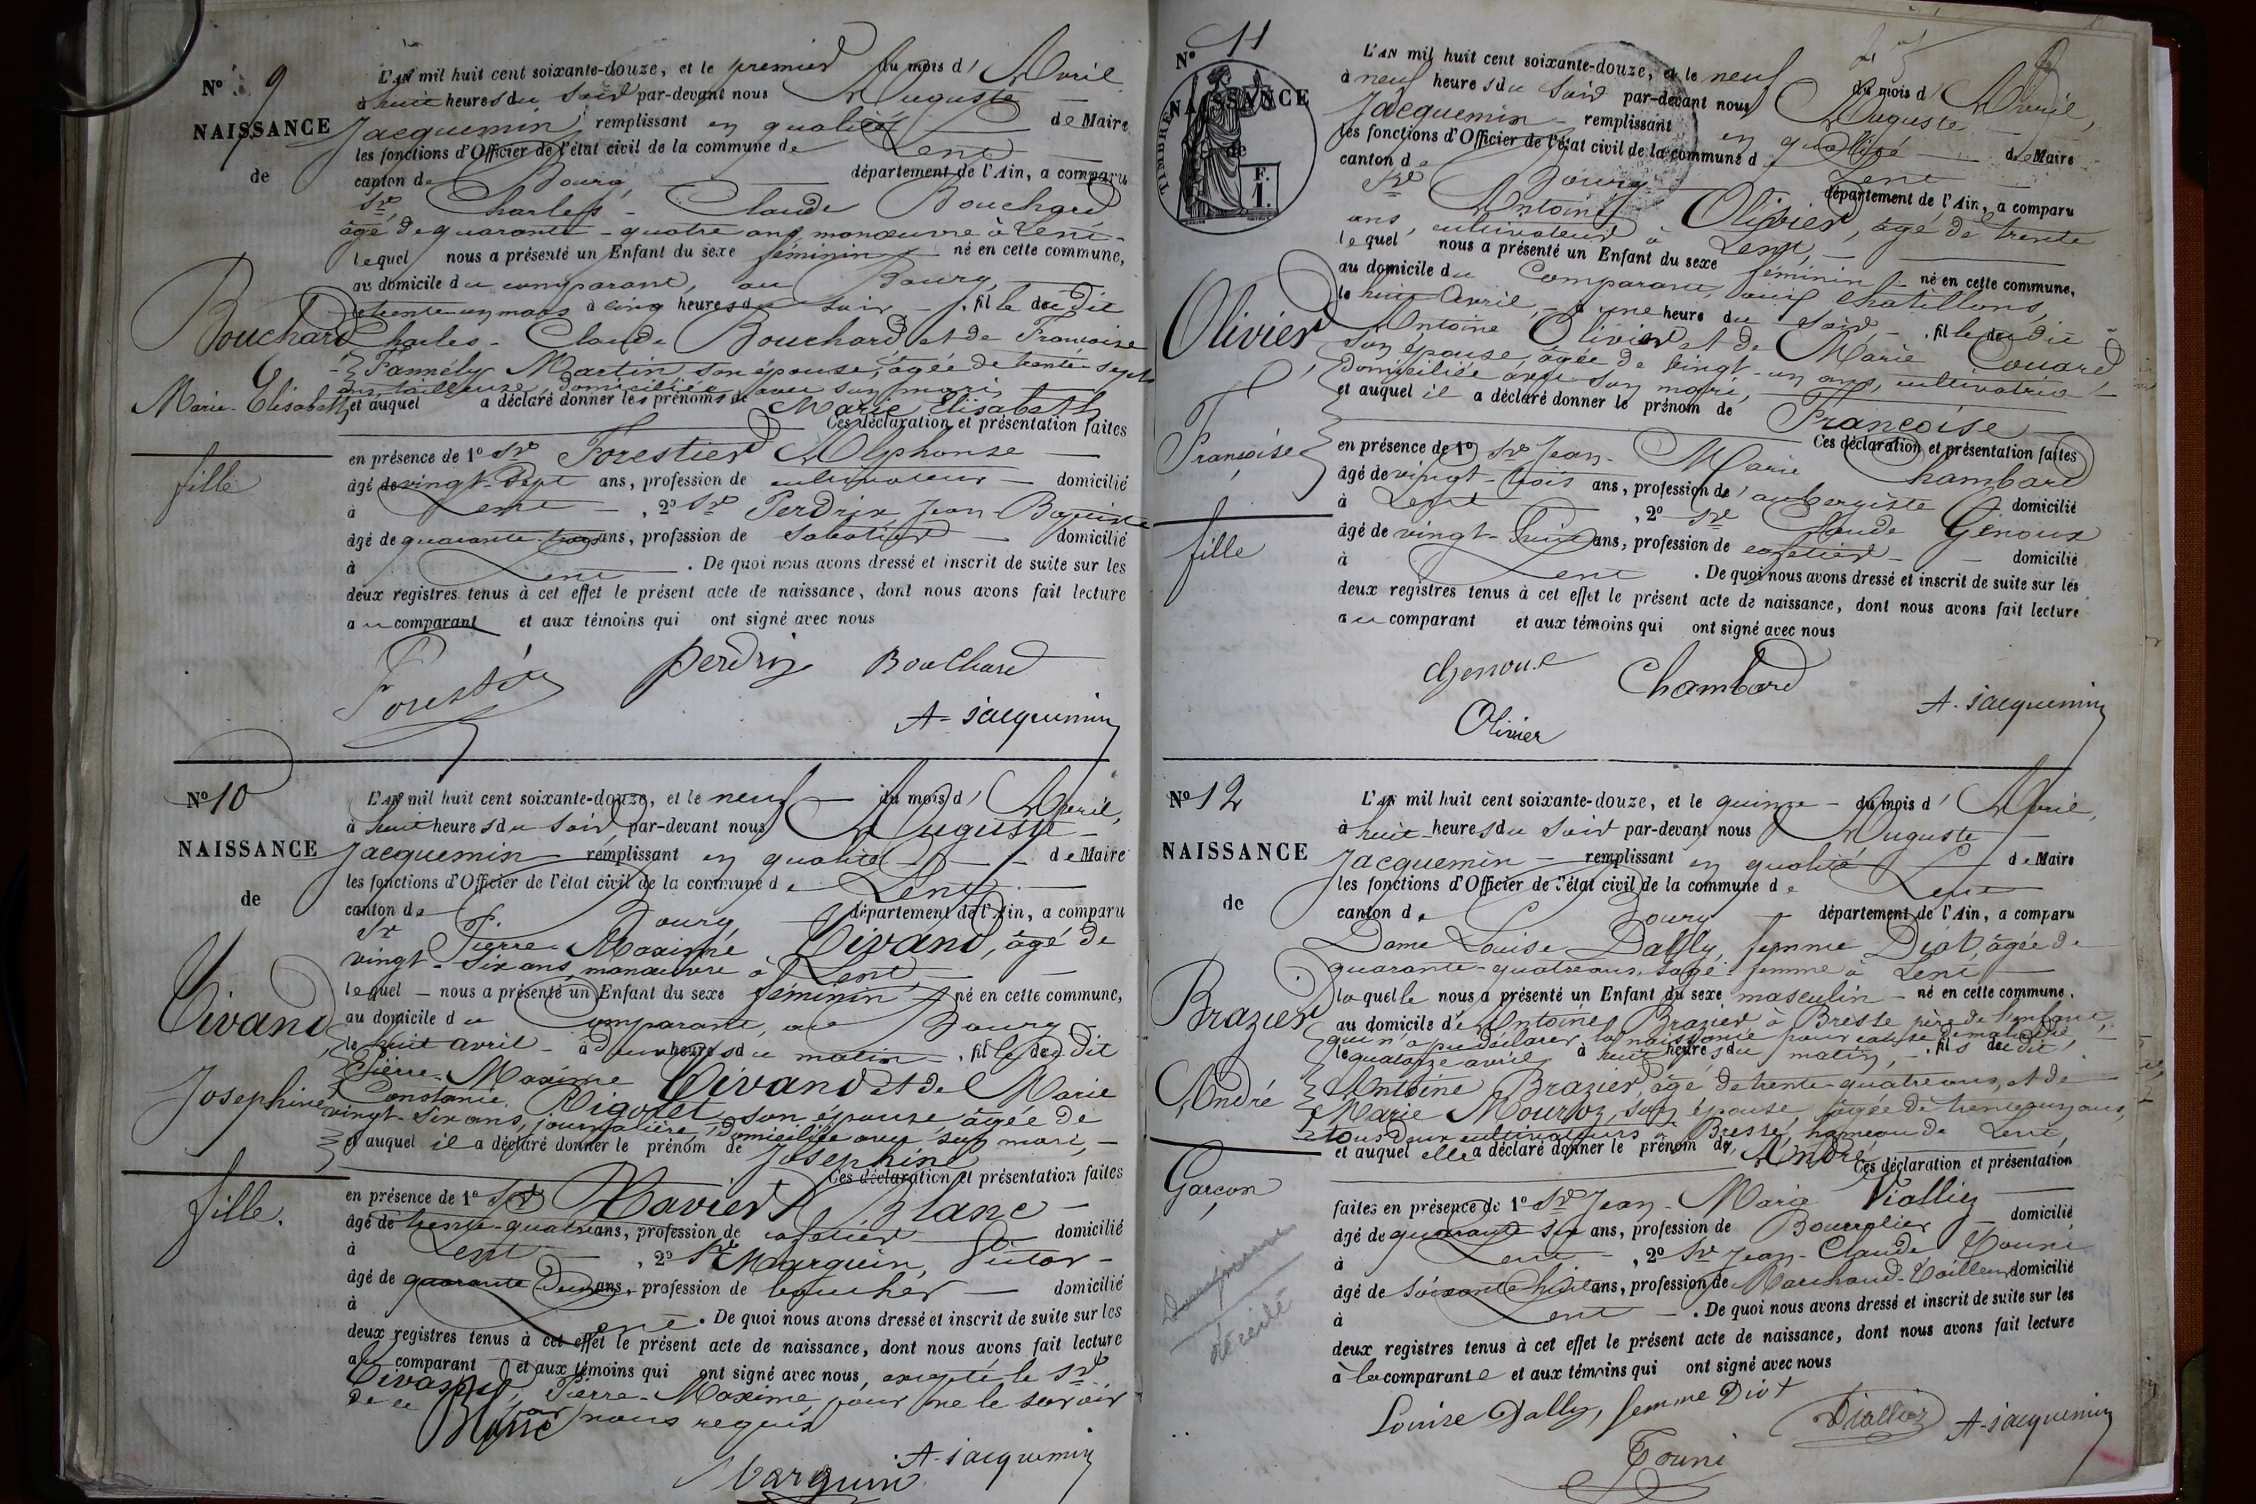 N° 9
NAISSANCE
de
Bouchard
Marie-Elisabeth
fille
L'AN mil huit cent soixante-douze, et le premier du mois d'Avril
à huit heures du soir par-devant nous Auguste
Jacquemin remplissant en qualité de Maire
les fonctions d'Officier de l'état civil de la commune de Lent
canton de Bourg département de l'Ain, a comparu
Sr Charles-Claude Bouchard
âgé de quarante-quatre ans manœuvre à Lent
lequel nous a présenté un Enfant du sexe féminin né en cette commune,
au domicile du comparant, au Bourg,
trente un mars à cinq heures du soir, fille du dit
Charles-Claude Bouchard et de Francoise
Fannély Martin son épouse, âgée de trente-sept
ans, tailleuse, domiciliée avec son mari
et auquel a déclaré donner les prénoms de Marie Elisabeth
Ces déclaration et présentation faites
en présence de 1° Sr Forestier Alphonse
âgé de vingt-sept ans, profession de cultivateur domicilié
à Lent, 2° Sr Perdrix Jean Baptiste
âgé de quarante-trois ans, profession de Sabotier domicilié
à Lent. De quoi nous avons dressé et inscrit de suite sur les
deux registres tenus à cet effet le présent acte de naissance, dont nous avons fait lecture
au comparant et aux témoins qui ont signé avec nous
Forestier perdrix Bouchard
A. Jacquemin
N° 10
NAISSANCE
de
Tivand
Josephine
fille.
L'AN mil huit cent soixante-douze, et le neuf du mois d'Avril,
à huit heures du soir par-devant nous Auguste
Jacquemin remplissant en qualité de Maire
les fonctions d'Officier de l'état civil de la commune de Lent
canton de Bourg département de l'Ain, a comparu
Sr Pierre Maxime Tivand, âgé de
vingt-six ans, manœuvre à Lent,
lequel nous a présenté un Enfant du sexe féminin né en cette commune,
au domicile du Comparant, au Bourg
le huit avril à deux heures du matin, fille du dit
Pierre-Maxime Tivand et de Marie
Constance Rigotet son épouse, âgée de
vingt-six ans, journalière, domiciliée avec son mari,
et auquel il a déclaré donner le prénom de Josephine
Ces déclaration et présentation faites
en présence de 1° Sr Xavier Blanc
âgé de trente-quatre ans, profession de cafetier domicilié
à Lent, 2° Sr Marguin, Victor
âgé de quarante deux ans, profession de boucher domicilié
à Lent. De quoi nous avons dressé et inscrit de suite sur les
deux registres tenus à cet effet le présent acte de naissance, dont nous avons fait lecture
au comparant et aux témoins qui ont signé avec nous, excepté le Sr
Tivand, Pierre-Maxime, pour ne le savoir
de ce par nous requis
Blanc
A. Jacquemin
Marguin
N° 11
TIMBRE
F. 1.
NAISSANCE
de
Olivier
Françoise
fille
L'AN mil huit cent soixante-douze, et le neuf du mois d'Avril,
à neuf heures du soir par-devant nous Auguste
Jacquemin remplissant en qualité de Maire
les fonctions d'Officier de l'état civil de la commune de Lent
canton de Bourg département de l'Ain, a comparu
Sr Antoine Olivier, âgé de trente
ans, cultivateur à Lent,
lequel nous a présenté un Enfant du sexe féminin né en cette commune,
au domicile du Comparant, aux Chatillons,
le huit Avril, à une heure du soir, fille du dit
Antoine Olivier et de Marie Couard,
son épouse, âgée de vingt-un ans, cultivatrice
domiciliée avec son mari,
et auquel il a déclaré donner le prénom de Francoise
Ces déclaration et présentation faites
en présence de 1° Sr Jean-Marie Chambard
âgé de vingt-trois ans, profession d'aubergiste domicilié
à Lent, 2° Sr Claude Genoux
âgé de vingt-huit ans, profession de cafetier domicilié
à Lent. De quoi nous avons dressé et inscrit de suite sur les
deux registres tenus à cet effet le présent acte de naissance, dont nous avons fait lecture
au comparant et aux témoins qui ont signé avec nous
Chambard
A. Jacquemin
Olivier
N° 12
NAISSANCE
de
Brazier
André
Garçon
L'AN mil huit cent soixante-douze, et le quinze du mois d'Avril,
à huit heures du soir par-devant nous Auguste
Jacquemin remplissant en qualité de Maire
les fonctions d'Officier de l'état civil de la commune de Lent
canton de Bourg département de l'Ain, a comparu
Dame Louise Dally, femme Diot, âgée de
quarante-quatre ans, sage-femme à Lent
laquelle nous a présenté un Enfant du sexe masculin né en cette commune,
au domicile de Antoine Brazier à Bresse père de l'enfant,
qui n'a pu déclarer la naissance pour cause de maladie,
le quatorze avril à huit heures du matin, fils du dit
Antoine Brazier, âgé de trente-quatre ans, et de
Marie Mourloz, son épouse, âgée de trente un ans,
tous deux cultivateurs à Bresse, hameau de Lent,
et auquel elle a déclaré donner le prénom de André
Ces déclaration et présentation
faites en présence de 1° Sr Jean-Marie Viallier
âgé de quarante six ans, profession de Bourrelier domicilié
à Lent, 2° Sr Jean-Claude Touni
âgé de soixante huit ans, profession de Marchand-Tailleur domicilié
à Lent. De quoi nous avons dressé et inscrit de suite sur les
deux registres tenus à cet effet le présent acte de naissance, dont nous avons fait lecture
à la comparante et aux témoins qui ont signé avec nous
Louise Dally, femme Diot
Viallier A. Jacquemin
Touni